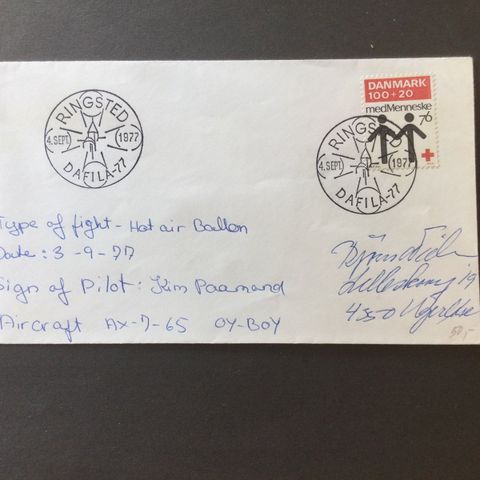 RINGSTED
4. SEPT. 1977
DAFILA-77
DANMARK
100+20
medMenneske
76
RINGSTED
4. SEPT. 1977
DAFILA-77
Type of fight - Hot air Ballon
Date: 3-9-77
Sign of Pilot: Kim Paamand
Aircraft AX-7-65 OY-BOY
19
4350
50,-